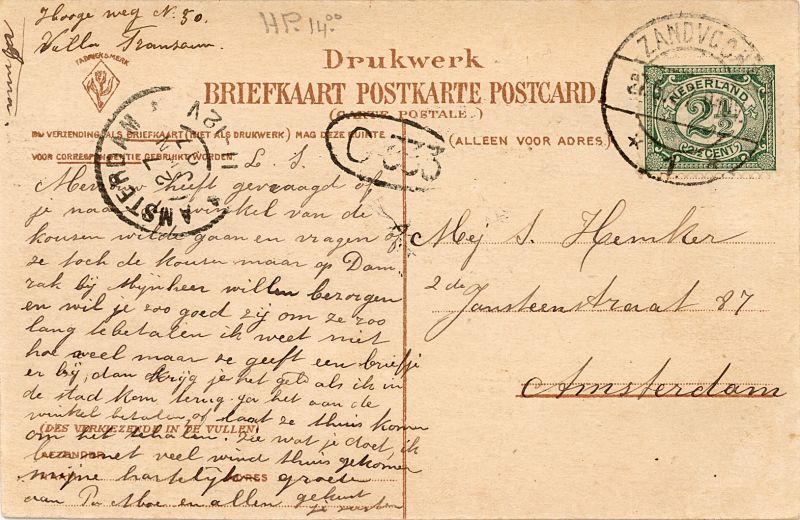 Hooge weg No. 50.
Villa Transam.
Anna.
HP. 14.00
FABRIEKSMERK
Drukwerk
BRIEFKAART POSTKARTE POSTCARD
(CARTE POSTALE.)
BIJ VERZENDING ALS BRIEFKAART (NIET ALS DRUKWERK) MAG DEZE RUIMTE
VOOR CORRESPONDENTIE GEBRUIKT WORDEN
(ALLEEN VOOR ADRES.)
ZANDVOORT
NEDERLAND
2½
(2½ CENT)
AMSTERDAM
C 33
L. S.
Mevrouw heeft gevraagd of
je naar winkel van de
kousen wilde gaan en vragen of
ze toch de kousen maar op Dam
rak bij Mijnheer willen bezorgen
en wil je zoo goed zij om ze zoo
lang te betalen ik weet niet
hoeveel maar ze geeft een briefje
er bij, dan krijg je het geld als ik in
de stad kom terug. ga het aan de
winkel betalen, of laat ze thuis komen
om het te halen. Zie wat je doet, ik
ben met veel wind thuis gekomen
mijne hartelijke groeten
aan Pa Moe en allen gekust
je zuster
(DES VERKIEZENDE IN TE VULLEN)
AFZENDER
ADRES
Mej S. Hemker
2de Jansteenstraat 87
Amsterdam